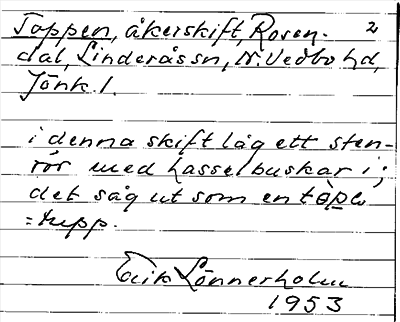 Toppen, åkerskift, Rosen- 2
dal, Linderås sn, N. Vedbo hd,
Jönk. l.
i denna skift låg ett sten-
rör med hasselbuskar i;
det såg ut som en
= tupp.
Erik Lönnerholm
1953